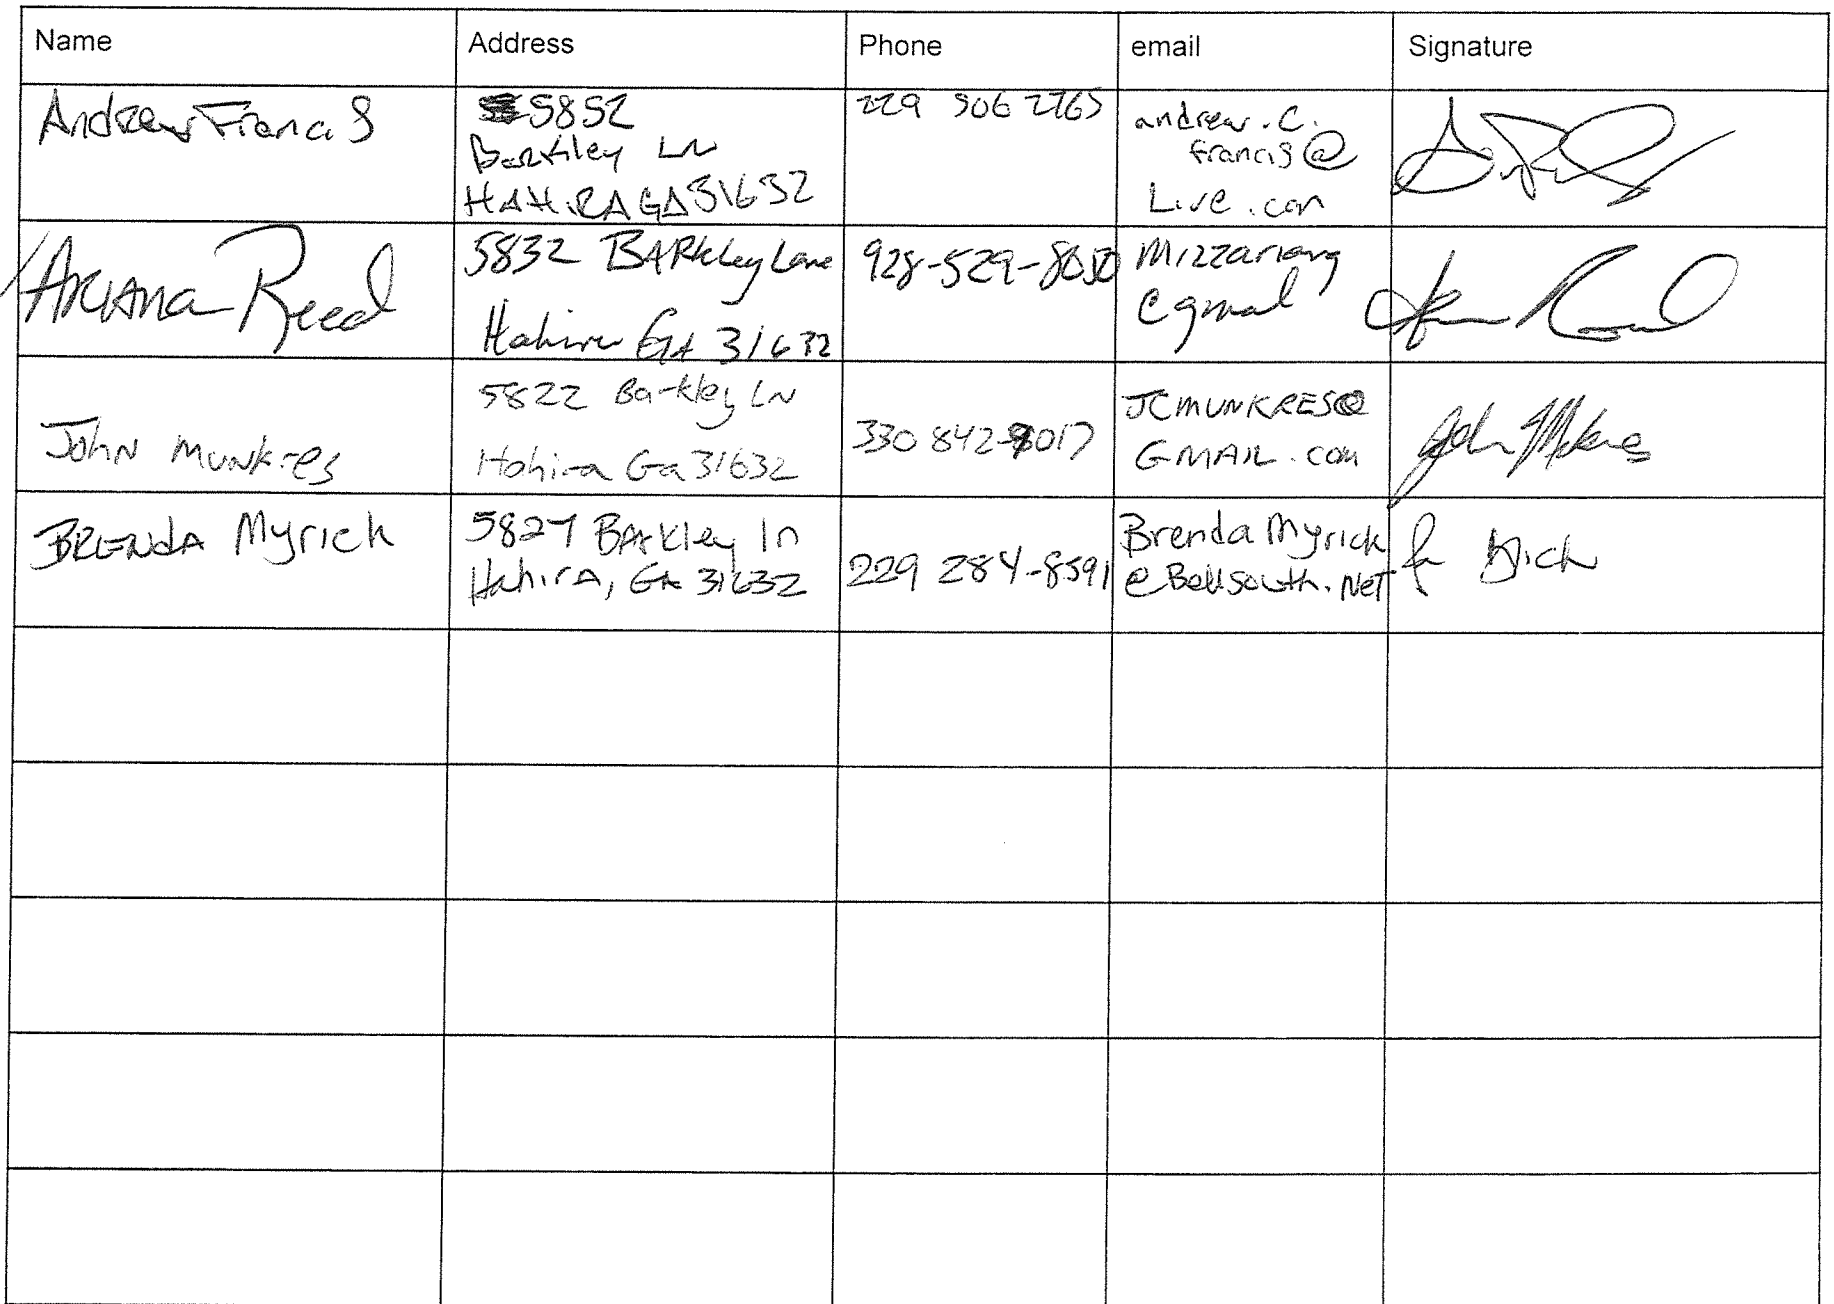 Name Address Phone email Signature
Andrew Francis
5852
Barkley LN
HAHIRA GA 31632
229 506 2765
andrew.c.
francis@
Live.com
Ariana Reed
5832 BARkley Lane
Hahira GA 31632
928-529-8050
Mizzariang
@gmail
John Munkres
5822 Barkley LN
Hahira Ga 31632
330 842-8017
JCMUNKRES@
GMAIL.com
BRENDA Myrick
5827 BArkley ln
Hahira, GA 31632
229 284-8591
Brenda Myrick
@Bellsouth.NeT